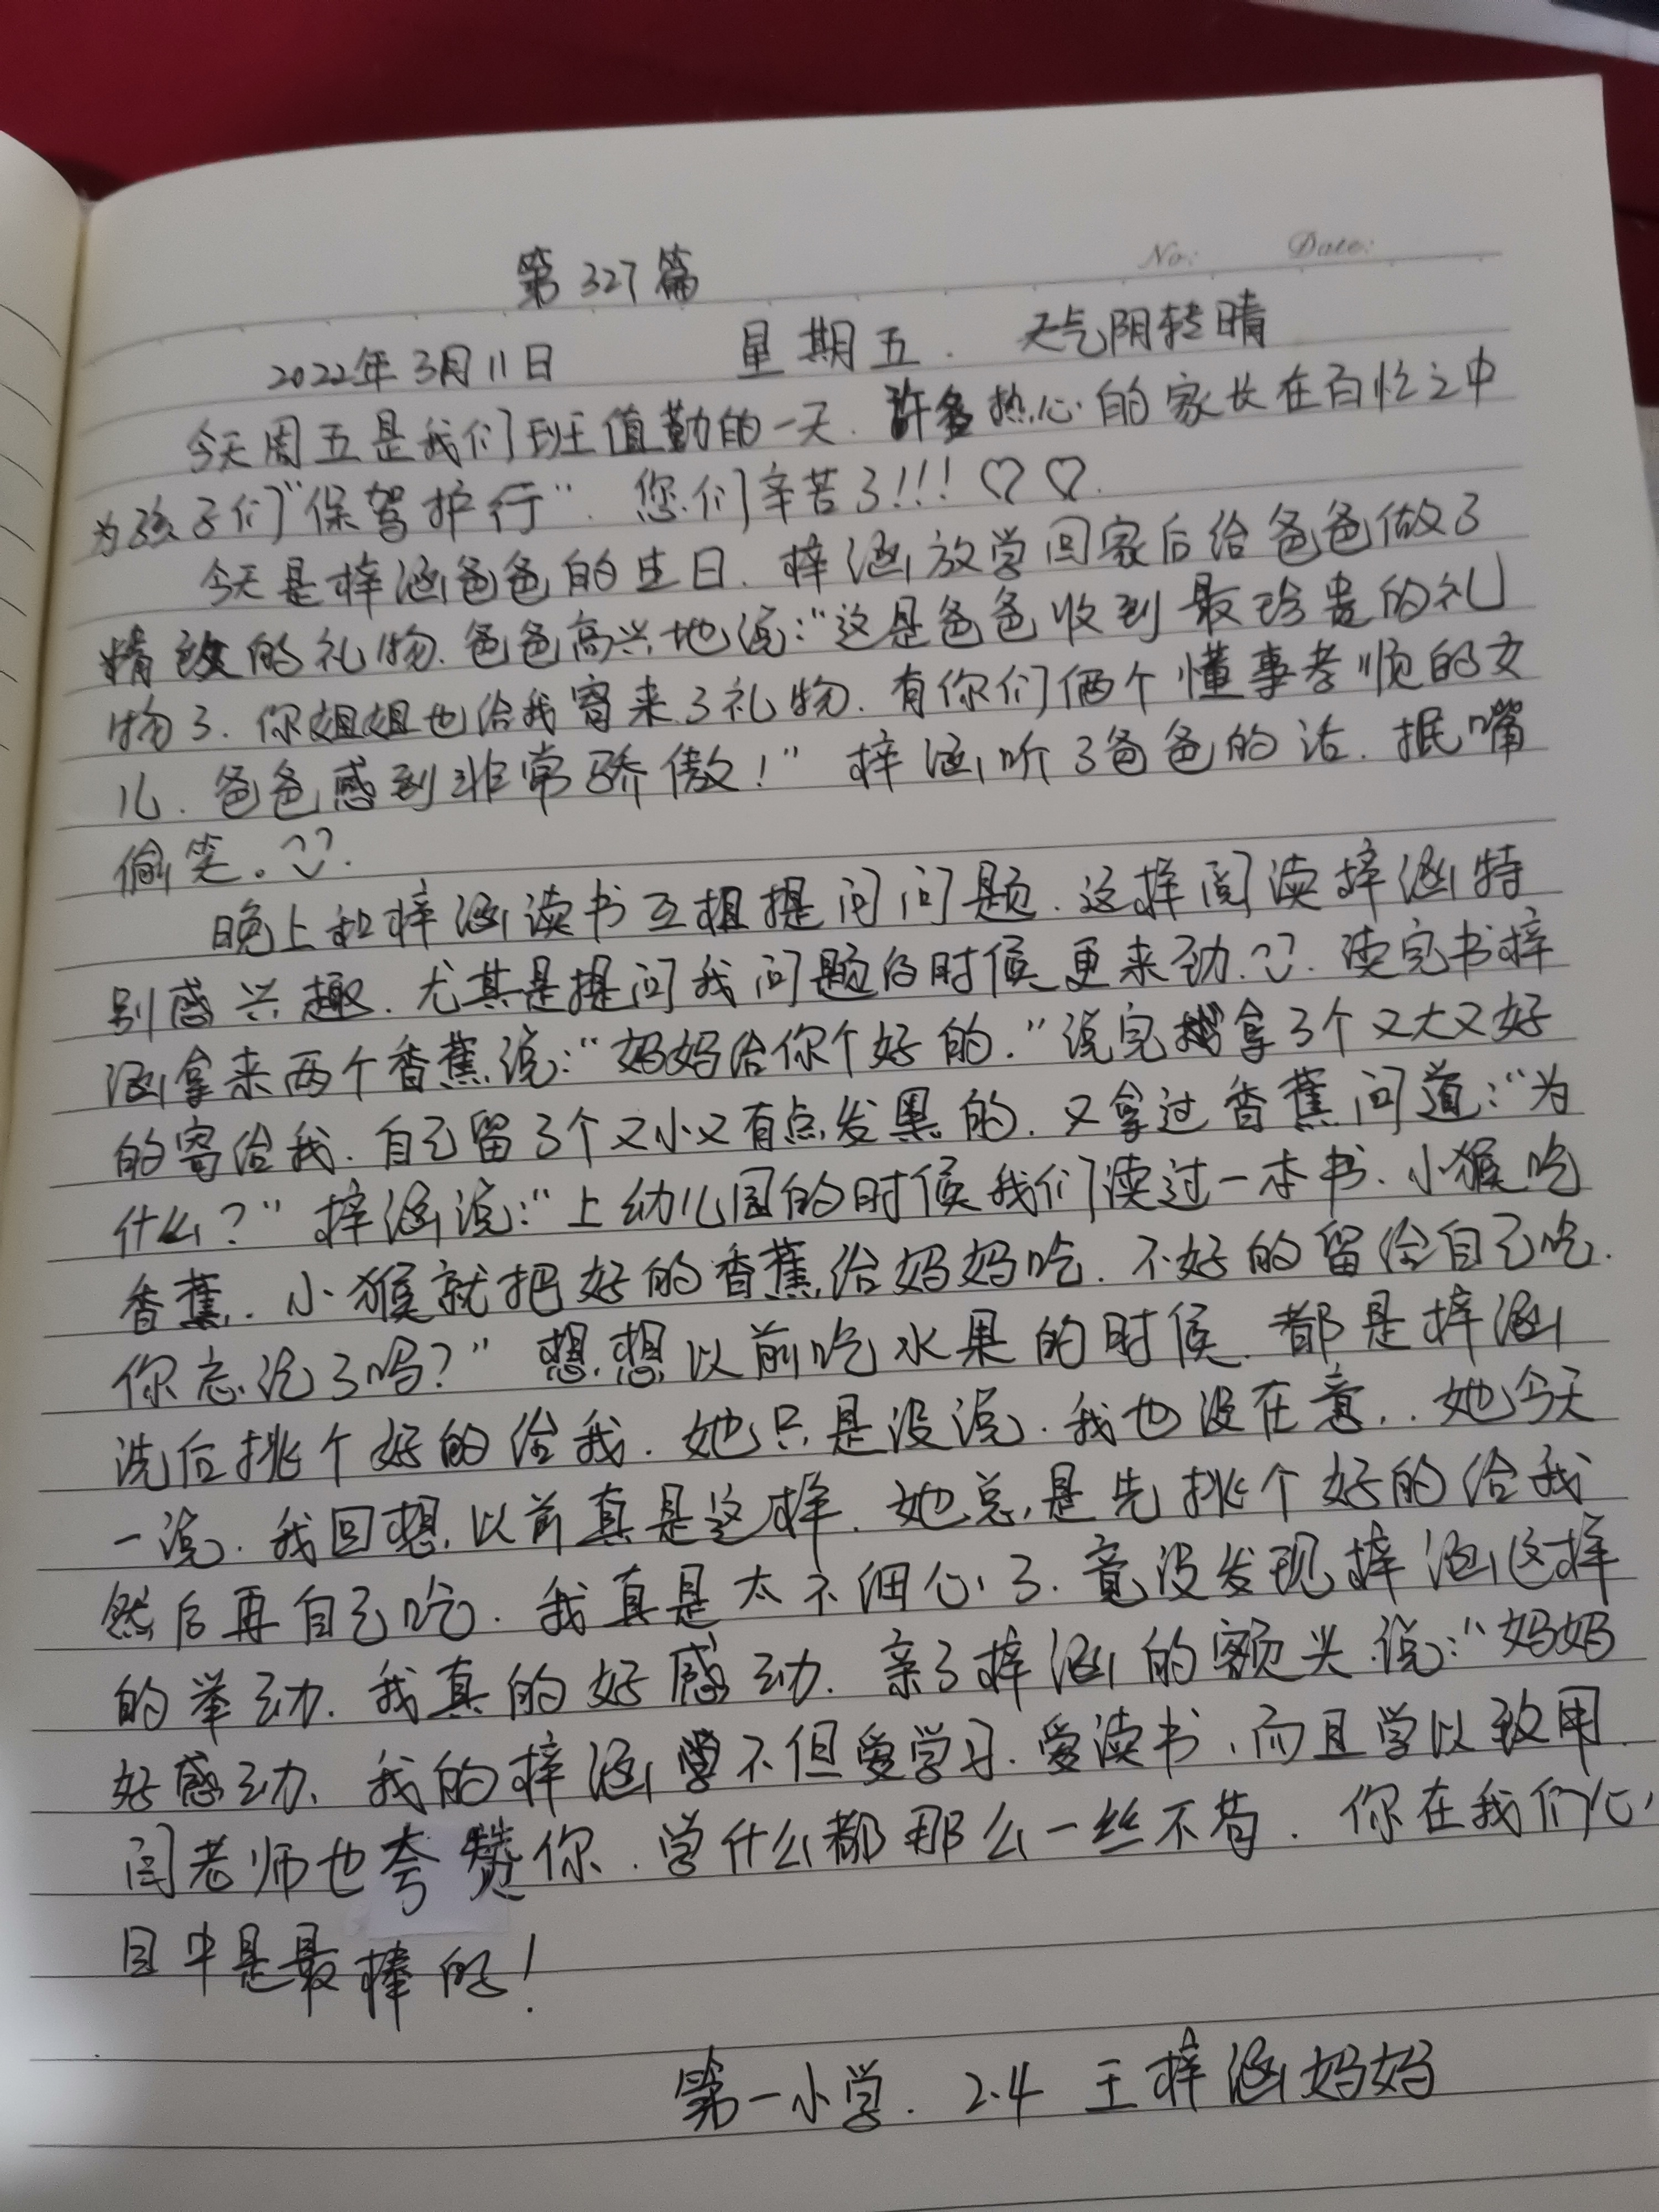 No:    Date:
第327篇
2022年3月11日    星期五.    天气阴转晴
今天周五是我们班值勤的一天.许多热心的家长在百忙之中
为孩子们“保驾护行”.您们辛苦了!!!♡♡.
今天是梓涵爸爸的生日.梓涵放学回家后给爸爸做了
精致的礼物.爸爸高兴地说:“这是爸爸收到最珍贵的礼
物了.你姐姐也给我寄来了礼物.有你们俩个懂事孝顺的女
儿.爸爸感到非常骄傲!”梓涵听了爸爸的话.抿嘴
偷笑。
晚上和梓涵读书互相提问问题.这样阅读梓涵特
别感兴趣.尤其是提问我问题的时候更来劲.读完书梓
涵拿来两个香蕉说:“妈妈给你个好的.”说完拿了个又大又好
的寄给我.自己留了个又小又有点发黑的.又拿过香蕉问道:“为
什么?”梓涵说:“上幼儿园的时候我们读过一本书.小猴吃
香蕉..小猴就把好的香蕉给妈妈吃.不好的留给自己吃.
你忘记了吗?”想想以前吃水果的时候.都是梓涵
洗后挑个好的给我.她只是没说.我也没在意..她今天
一说.我回想以前真是这样.她总是先挑个好的给我
然后再自己吃.我真是太不细心了.竟没发现梓涵这样
的举动.我真的好感动.亲了梓涵的额头说:“妈妈
好感动.我的梓涵不但爱学习.爱读书.而且学以致用.
闫老师也夸赞你.学什么都那么一丝不苟.你在我们心
目中是最棒的!
第一小学.2.4 王梓涵妈妈